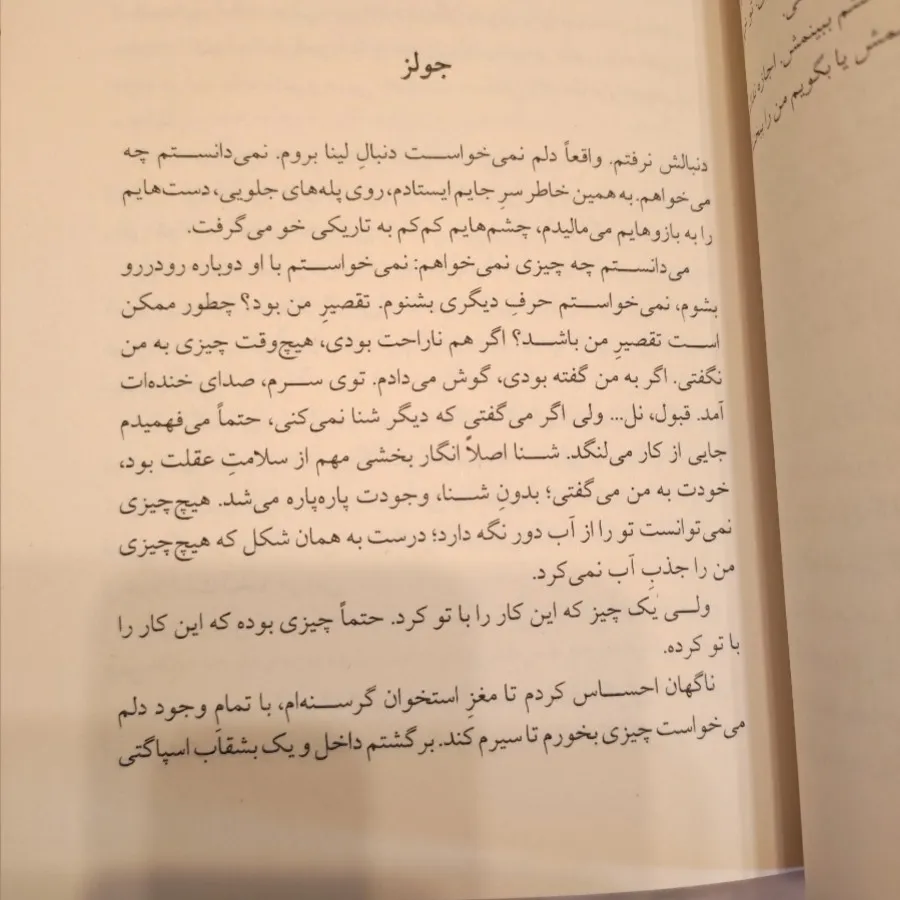 جولز
دنبالش نرفتم. واقعاً دلم نمی‌خواست دنبالِ لینا بروم. نمی‌دانستم چه
می‌خواهم. به همین خاطر سرِ جایم ایستادم، روی پله‌های جلویی، دست‌هایم
را به بازوهایم می‌مالیدم، چشم‌هایم کم‌کم به تاریکی خو می‌گرفت.
می‌دانستم چه چیزی نمی‌خواهم: نمی‌خواستم با او دوباره رودررو
بشوم، نمی‌خواستم حرفِ دیگری بشنوم. تقصیرِ من بود؟ چطور ممکن
است تقصیرِ من باشد؟ اگر هم ناراحت بودی، هیچ‌وقت چیزی به من
نگفتی. اگر به من گفته بودی، گوش می‌دادم. توی سرم، صدای خنده‌ات
آمد. قبول، نل... ولی اگر می‌گفتی که دیگر شنا نمی‌کنی، حتماً می‌فهمیدم
جایی از کار می‌لنگد. شنا اصلاً انگار بخشی مهم از سلامتِ عقلت بود،
خودت به من می‌گفتی؛ بدونِ شنا، وجودت پاره‌پاره می‌شد. هیچ‌چیزی
نمی‌توانست تو را از آب دور نگه دارد؛ درست به همان شکل که هیچ‌چیزی
من را جذبِ آب نمی‌کرد.
ولی یک چیز که این کار را با تو کرد. حتماً چیزی بوده که این کار را
با تو کرده.
ناگهان احساس کردم تا مغزِ استخوان گرسنه‌ام، با تمامِ وجود دلم
می‌خواست چیزی بخورم تا سیرم کند. برگشتم داخل و یک بشقاب اسپاگتی
ببینمش. اجازه
یا بگویم من را